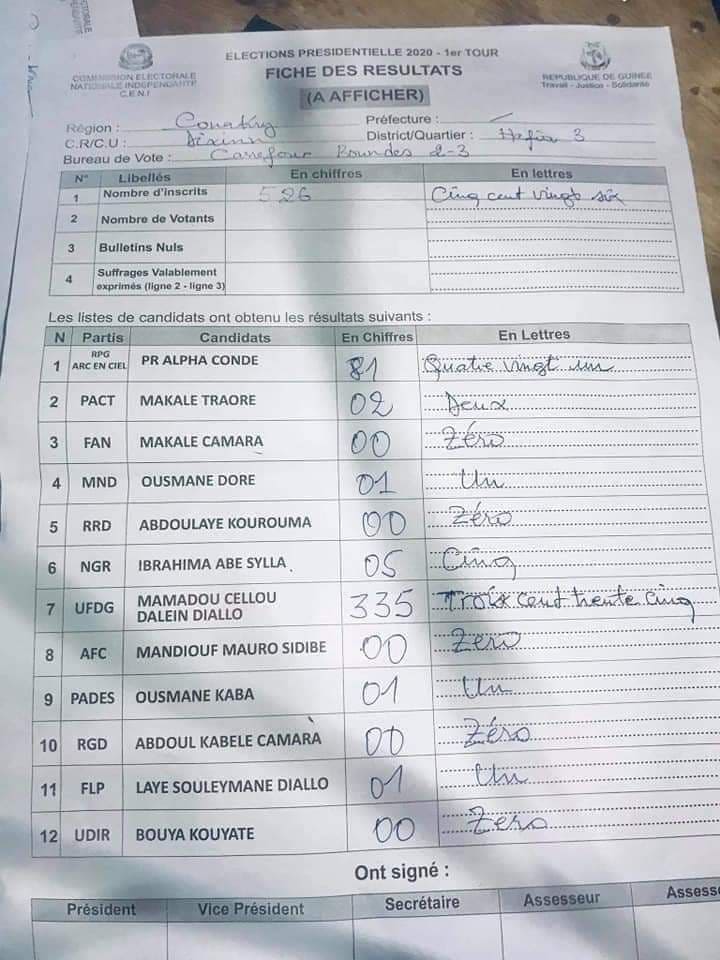 COMMISSION ELECTORALE
NATIONALE INDEPENDANTE
C.E.N.I
ELECTIONS PRESIDENTIELLE 2020 - 1er TOUR
FICHE DES RESULTATS
(A AFFICHER)
REPUBLIQUE DE GUINEE
Travail - Justice - Solidarité
Région : Conakry Préfecture :
C.R/C.U : Dixinn District/Quartier : Hafia 3
Bureau de Vote : Carrefour Boundes 2-3
N° Libellés En chiffres En lettres
1 Nombre d'inscrits 526 Cinq cent vingt six
2 Nombre de Votants
3 Bulletins Nuls
4 Suffrages Valablement
exprimés (ligne 2 - ligne 3)
Les listes de candidats ont obtenu les résultats suivants :
N Partis Candidats En Chiffres En Lettres
1 RPG ARC EN CIEL PR ALPHA CONDE 81 Quatre vingt un
2 PACT MAKALE TRAORE 02 Deux
3 FAN MAKALE CAMARA 00 Zéro
4 MND OUSMANE DORE 01 Un
5 RRD ABDOULAYE KOUROUMA 00 Zéro
6 NGR IBRAHIMA ABE SYLLA 05 Cinq
7 UFDG MAMADOU CELLOU DALEIN DIALLO 335 Troix cent trente cinq
8 AFC MANDIOUF MAURO SIDIBE 00 Zero
9 PADES OUSMANE KABA 01 Un
10 RGD ABDOUL KABELE CAMARA 00 Zéro
11 FLP LAYE SOULEYMANE DIALLO 01 Un
12 UDIR BOUYA KOUYATE 00 Zero
Ont signé :
Président Vice Président Secrétaire Assesseur Assess